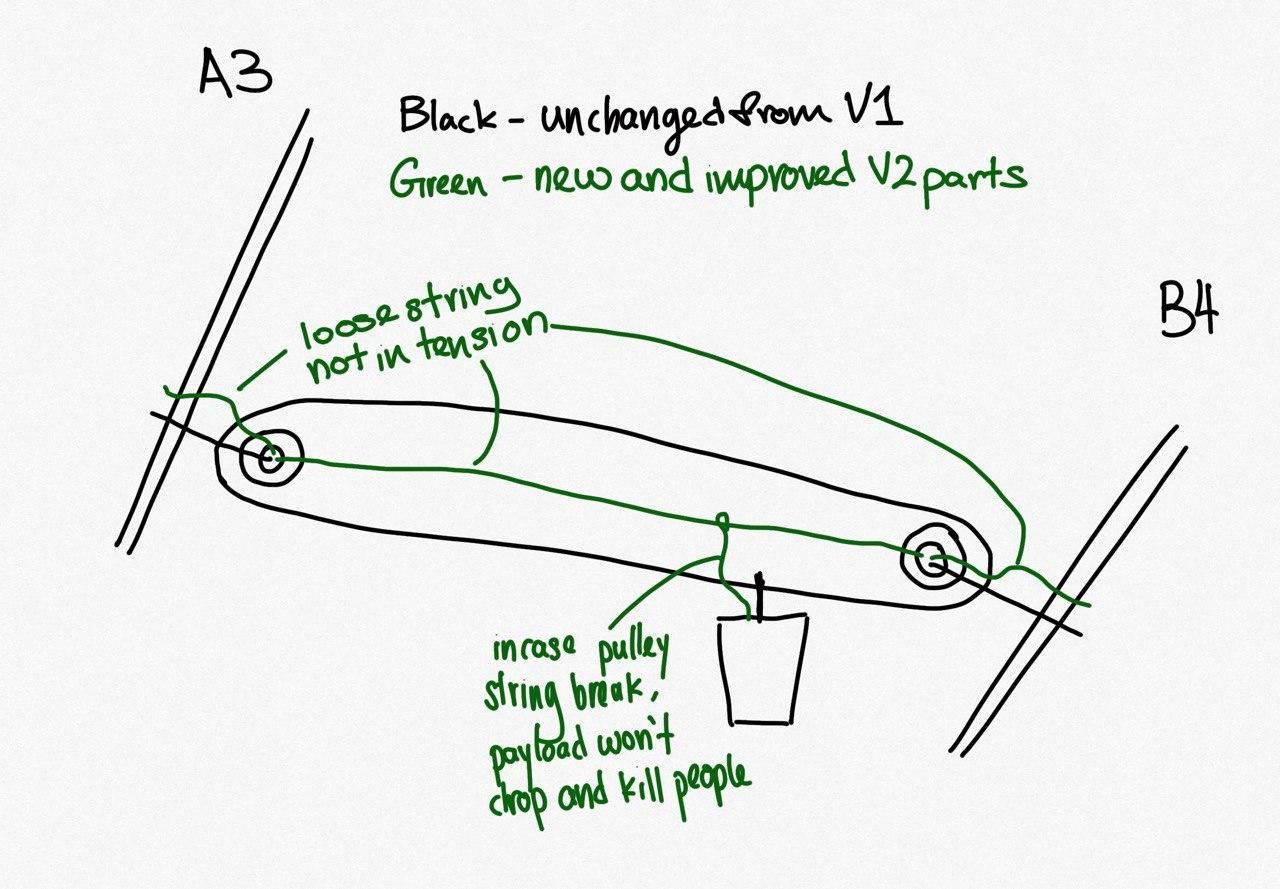 A3
Black - unchanged from V1
Green - new and improved V2 parts
loose string
not in tension
B4
incase pulley
string break,
payload won't
drop and kill people